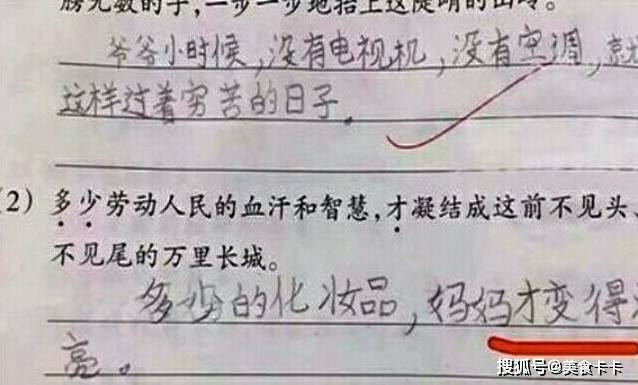 膀无数的手,一步一步地抬上这陡峭的山岭。
爷爷小时候,没有电视机,没有空调,就
这样过着穷苦的日子。
(2) 多少劳动人民的血汗和智慧,才凝结成这前不见头、
不见尾的万里长城。
多少的化妆品,妈妈才变得
亮。
搜狐号@美食卡卡